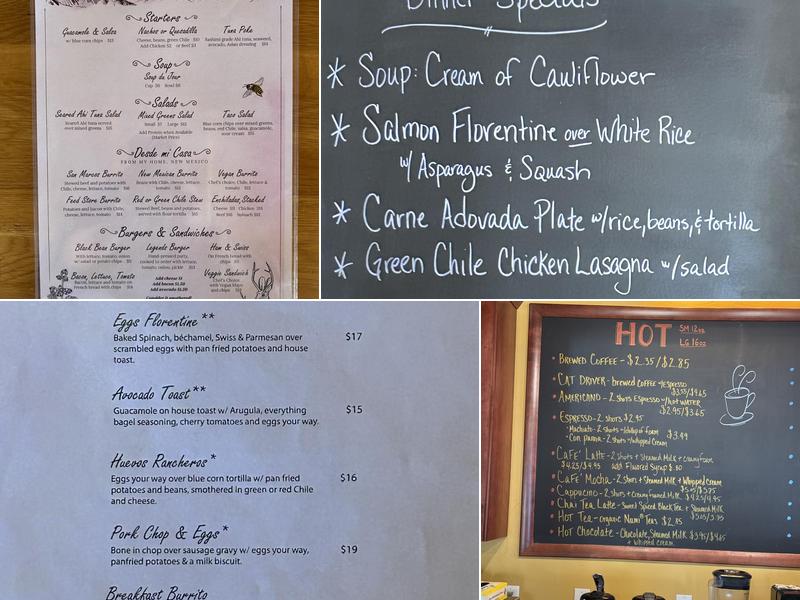 Starters
Guacamole & Salsa
w/ blue corn chips $13
Nachos or Quesadilla
Cheese, beans, green Chile $10
Add Chicken $2 or Beef $3
Tuna Poke
Sashimi grade Ahi tuna, seaweed,
avocado, Asian dressing $14
Soup
Soup du Jour
Cup $6 Bowl $8
Salads
Seared Ahi Tuna Salad
Seared Ahi tuna served
over mixed greens $15
Mixed Greens Salad
Small $7 Large $12
Add Protein when Available
(Market Price)
Taco Salad
Blue corn chips over mixed greens,
beans, red Chile, salsa, guacamole,
sour cream $15
Desde mi Casa
FROM MY HOME, NEW MEXICO
San Marcos Burrito
Stewed beef and potatoes with
Chile, cheese, lettuce, tomato $16
New Mexican Burrito
Beans with Chile, cheese, lettuce,
tomato
Vegan Burrito
Chef's choice, Chile, lettuce &
tomato
Feed Store Burrito
Potatoes and bacon with Chile,
cheese, lettuce, tomato $14
Red or Green Chile Stew
Stewed Beef, beans and potatoes,
served with flour tortilla $15
Enchiladas, Stacked
Cheese $13 Chicken $14
Beef $16 Spinach $13
Burgers & Sandwiches
Black Bean Burger
With lettuce, tomato, onion
w/ salad or potato chips
Legends Burger
Hand-pressed patty,
cooked to order with lettuce,
tomato, onion, pickle
Ham & Swiss
On French bread with
chips
Bacon, Lettuce, Tomato
Bacon, lettuce and tomato on
French bread with chips $14
Add cheese $1
Add bacon $1.50
Add avocado $1.50
Veggie Sandwich
Chef's Choice
with Vegan Mayo
and chips
Dinner Specials
* Soup: Cream of Cauliflower
* Salmon Florentine over White Rice
w/ Asparagus & Squash
* Carne Adovada Plate w/rice, beans, & tortilla
* Green Chile Chicken Lasagna w/salad
Eggs Florentine**
Baked Spinach, béchamel, Swiss & Parmesan over $17
scrambled eggs with pan fried potatoes and house
toast.
Avocado Toast**
Guacamole on house toast w/ Arugula, everything $15
bagel seasoning, cherry tomatoes and eggs your way.
Huevos Rancheros*
Eggs your way over blue corn tortilla w/ pan fried $16
potatoes and beans, smothered in green or red Chile
and cheese.
Pork Chop & Eggs*
Bone in chop over sausage gravy w/ eggs your way, $19
panfried potatoes & a milk biscuit.
Breakfast Burrito
HOT SM 12oz
LG 16oz
Brewed Coffee - $2.35/$2.85
Cat Driver - brewed coffee w/espresso
$3.55/$4.65
Americano - 2 shots Espresso w/hot water
$2.95/$3.65
Espresso - 2 shots $2.95
- Machiato - 2 shots w/dollop of foam
- Con panna - 2 shots w/whipped cream $3.49
Cafe' Latte - 2 shots + steamed milk + creamy foam
$4.25/$4.95 add Flavored Syrup $.80
Cafe' Mocha - 2 shots + steamed milk + whipped cream
Cappucino - 2 shots + creamy foamed milk $4.25/4.95
Chai Tea Latte - Sweet Spiced Black Tea + Steamed Milk
Hot Tea - organic Numi Teas $2.85
Hot Chocolate - Chocolate, Steamed Milk $3.95/$4.65
+ whipped cream